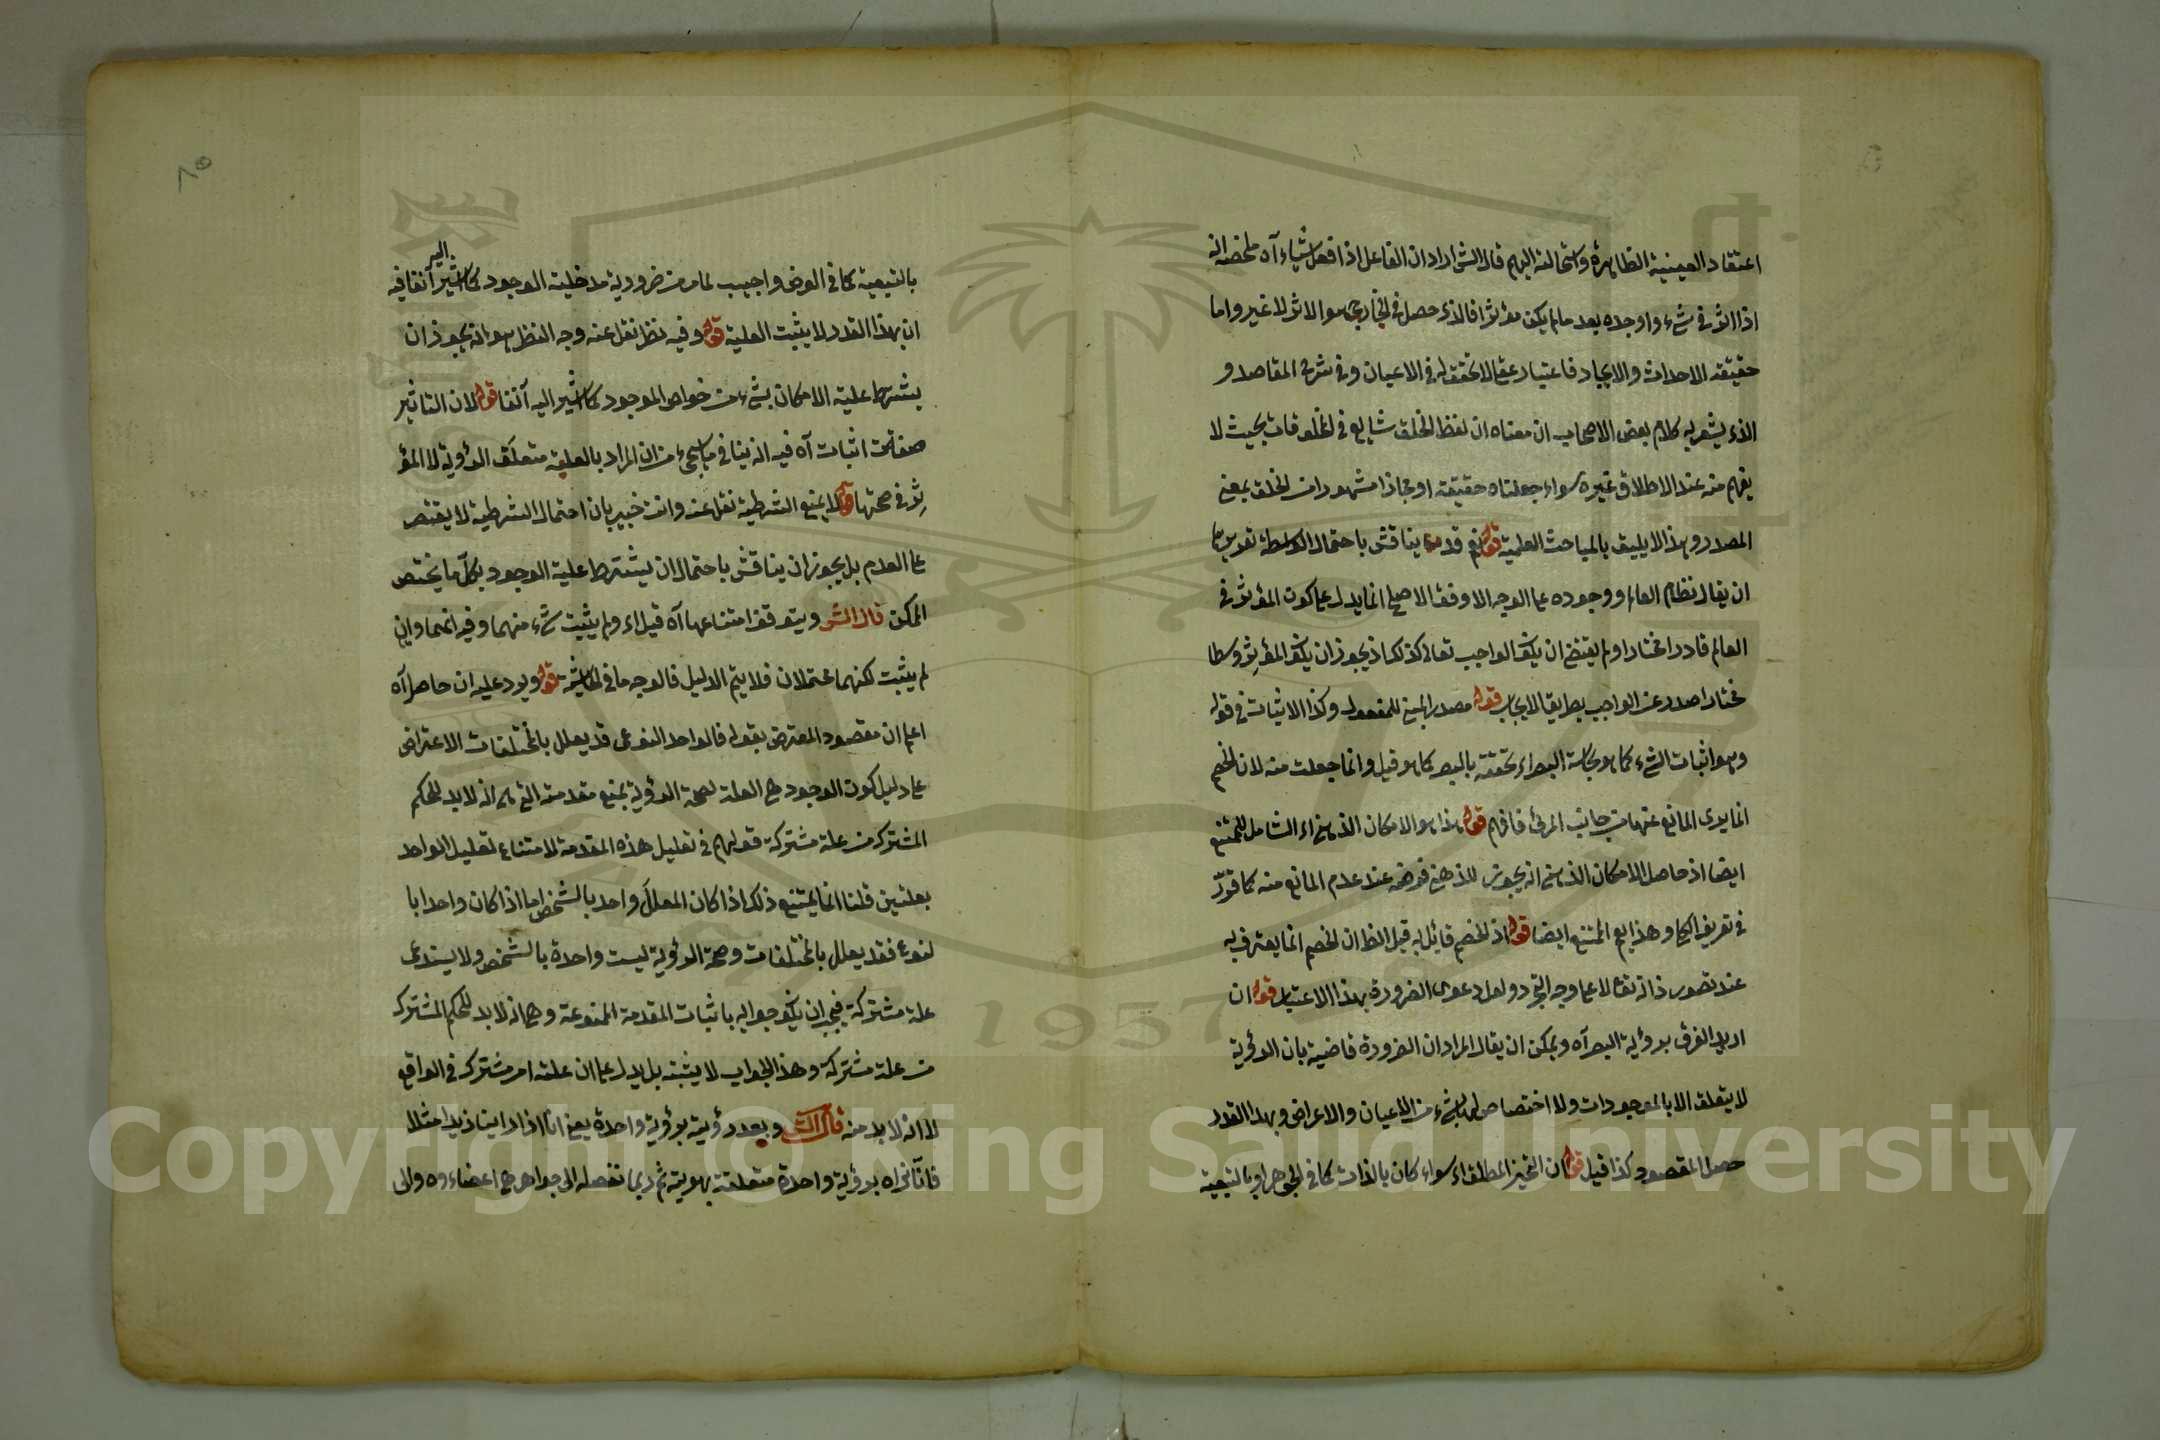 اعتقاد العينية الظاهرة واستحالته اليهم قال الش اراد ان الفاعل اذا فعل شياء آه ملخصه انه
اذا اثر في شيء واوجده بعد ما لم يكن مؤثرا فالذي حصل في الخارج هو الاثر لا غير واما
حقيقة الاحداث والايجاد فاعتبار عقلي لا تحقق له في الاعيان وفي شرح المقاصد و
الذي يشعر به كلام بعض الاصحاب ان معناه ان لفظ الخلق شايع في المخلوقات بحيث لا
يفهم منه عند الاطلاق غيره سواء جعلناه حقيقة او مجازا مشهورا في الخلق بمعنى
المصدر وهذا لا يليق بالمباحث العلمية قوله نعم قد يناقش باحتمال الواسطة تقديرها
ان يقال نظام العالم ووجوده على الوجه الاوفق الاصلح انما يدل على كون المؤثر في
العالم قادرا مختارا ولم يقتض ان يكون الواجب تعالى كذلك اذ يجوز ان يكون المؤثر وسطا
مختارا صدر عن الواجب بطريق الايجاب قوله مصدر المبني للمفعول وكذا الاثبات في قوله
وهو اثبات الشيء كما هو بحاسة البصر اي تحققه بالبصر كما هو قيل وانما جعلت منه لان الخصم
انما يدعي المانع عنها من جانب المرئي فافهم قوله هذا هو الامكان الذهني اي الشامل للممتنع
ايضا اذ حاصل الامكان الذهني انه يجوز للذهن فرضه عند عدم المانع منه كما قرر
في تعريف الكلي وهذا يعم الممتنع ايضا قوله اذ الخصم قائل به قيل الظ ان الخصم انما يعترف به
عند تصور ذاته تعالى لا على وجه التجرد ولعل دعوى الضرورة بهذا الاعتبار قوله ان
اريد الفرق برؤية البصر آه ويمكن ان يقال المراد ان الضرورة قاضية بان الرؤية
لا يتعلق الا بالموجودات ولا اختصاص لها بشيء من الاعيان والاعراض وبهذا القدر
حصل المقصود كذا قيل قوله ان التحيز المطلق اي سواء كان بالذات كما في الجوهر او بالتبعية
بالتبعية كما في العرض واجيب لما مر من ضرورية مدخلية الموجود كما اشير اليه آنفا فيه
ان بهذا القدر لا يثبت العلية قوله وفيه نظر نقل عنه وجه النظر هو انه يجوز ان
يشترط علية الامكان بشيء من خواص الموجود كما اشير اليه آنفا قوله لان التاثير
صفة اثبات آه فيه انه ينافي ما سيجيء من ان المراد بالعلية متعلق الرؤية لا المؤ
ثر في صحتها قوله لا يمنع الشرطية نقل عنه وانت خبير بان احتمال الشرطية لا يقتصر
على العدم بل يجوز ان يناقش باحتمال ان يشترط علية الوجود بكل ما يختص
الممكن قال الش ويتوقف امتناعها آه قيل اي ولم يثبت شيء منهما وفيه انهما وان
لم يثبت لكنهما محتملان فلا يتم الدليل فالوجه ما في الحاشية قوله ويرد عليه ان حاصل آه
اعلم ان مقصود المعترض بقوله فالواحد النوعي قد يعلل بالمختلفات الاعتراض
على دليل كون الوجود هي العلة لصحة الرؤية بمنع مقدمته التي هي انه لا بد للحكم
المشترك من علة مشتركة قولهم في تعليل هذه المقدمة لامتناع تعليل الواحد
بعلتين قلنا انما يمتنع ذلك اذا كان المعلل واحد بالشخص اما اذا كان واحدا با
لنوع فقد يعلل بالمختلفات وصحة الرؤية ليست واحدة بالشخص ولا يستدعي
علة مشتركة فيجب ان يكون جوابه باثبات المقدمة الممنوعة وهي انه لا بد للحكم المشترك
من علة مشتركة وهذا الجواب لا يثبته بل يدل على ان علته امر مشترك في الواقع
لا انه لا بد منه قال الش وبعد رؤيته برؤية واحدة يعني انا اذا راينا زيدا مثلا
فانا نراه برؤية واحدة متعلقة بهويته ثم ربما نفصله الى جواهر هي اعضاءه والى
٨٥
1957
Copyright © King Saud University